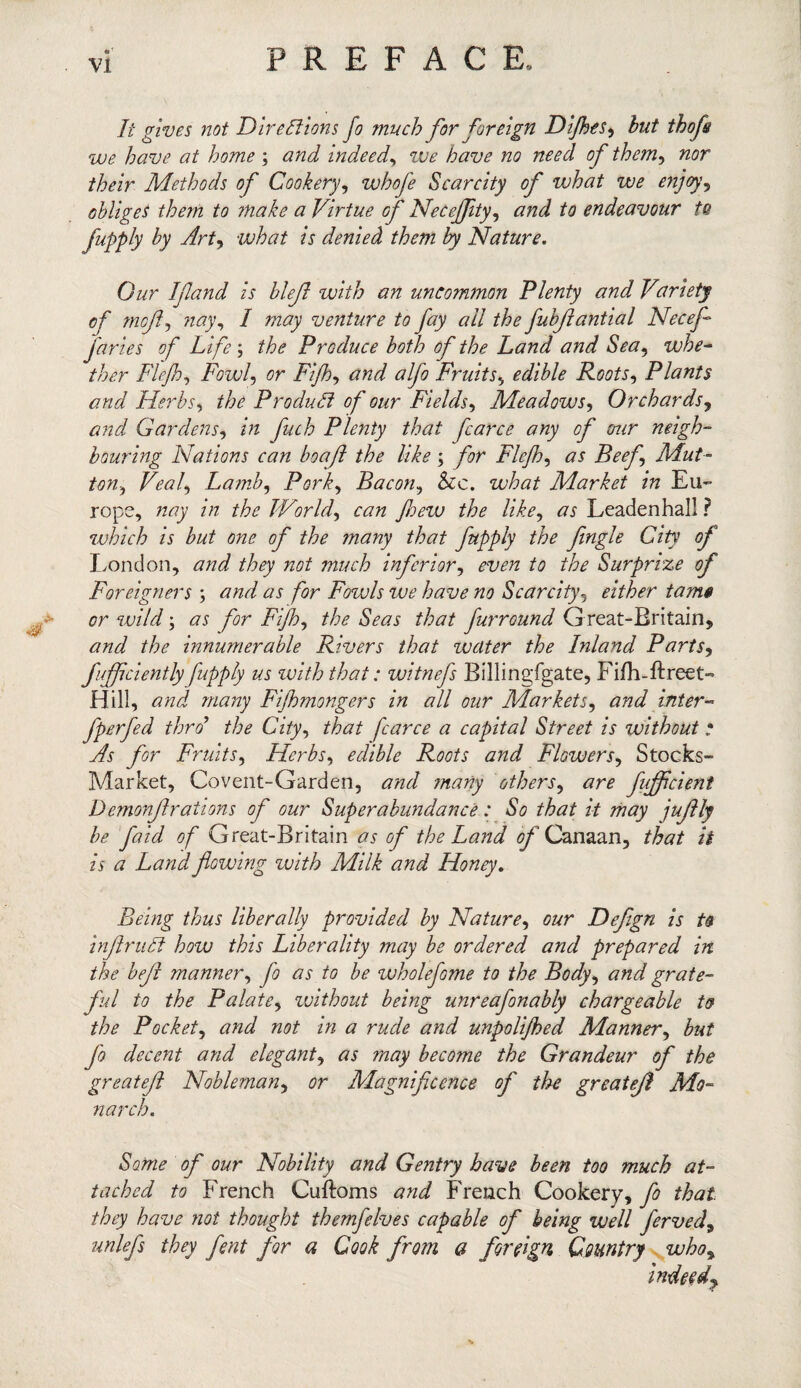 vi PREFACE.
It gives not Directions ſo much for foreign Diſhes, but thoſe
we have at home; and indeed, we have no need of them, nor
their Methods of Cookery, whoſe Scarcity of what we enjoy,
obliges them to make a Virtue of Neceſſity, and to endeavour to
ſupply by Art, what is denied them by Nature.
Our Iſland is bleſt with an uncommon Plenty and Variety
of moſt, nay, I may venture to ſay all the ſubſtantial Neceſ-
ſaries of Life; the Produce both of the Land and Sea, whe-
ther Fleſh, Fowl, or Fiſh, and alſo Fruits, edible Roots, Plants
and Herbs, the Product of our Fields, Meadows, Orchards,
and Gardens, in ſuch Plenty that ſcarce any of our neigh-
bouring Nations can boaſt the like; for Fleſh, as Beef, Mut-
ton, Veal, Lamb, Pork, Bacon, &c. what Market in Eu-
rope, nay in the World, can ſhew the like, as Leadenhall?
which is but one of the many that ſupply the ſingle City of
London, and they not much inferior, even to the Surprize of
Foreigners; and as for Fowls we have no Scarcity, either tame
or wild; as for Fiſh, the Seas that ſurround Great-Britain,
and the innumerable Rivers that water the Inland Parts,
ſufficiently ſupply us with that: witneſs Billingſgate, Fiſh-ſtreet-
Hill, and many Fiſhmongers in all our Markets, and inter-
ſperſed thro' the City, that ſcarce a capital Street is without:
As for Fruits, Herbs, edible Roots and Flowers, Stocks-
Market, Covent-Garden, and many others, are ſufficient
Demonſtrations of our Superabundance: So that it may juſtly
be ſaid of Great-Britain as of the Land of Canaan, that it
is a Land flowing with Milk and Honey.
Being thus liberally provided by Nature, our Deſign is to
inſtruct how this Liberality may be ordered and prepared in
the beſt manner, ſo as to be wholeſome to the Body, and grate-
ful to the Palate, without being unreaſonably chargeable to
the Pocket, and not in a rude and unpoliſhed Manner, but
ſo decent and elegant, as may become the Grandeur of the
greateſt Nobleman, or Magnificence of the greateſt Mo-
narch.
Some of our Nobility and Gentry have been too much at-
tached to French Cuſtoms and French Cookery, ſo that
they have not thought themſelves capable of being well ſerved,
unleſs they ſent for a Cook from a foreign Country who,
indeed,